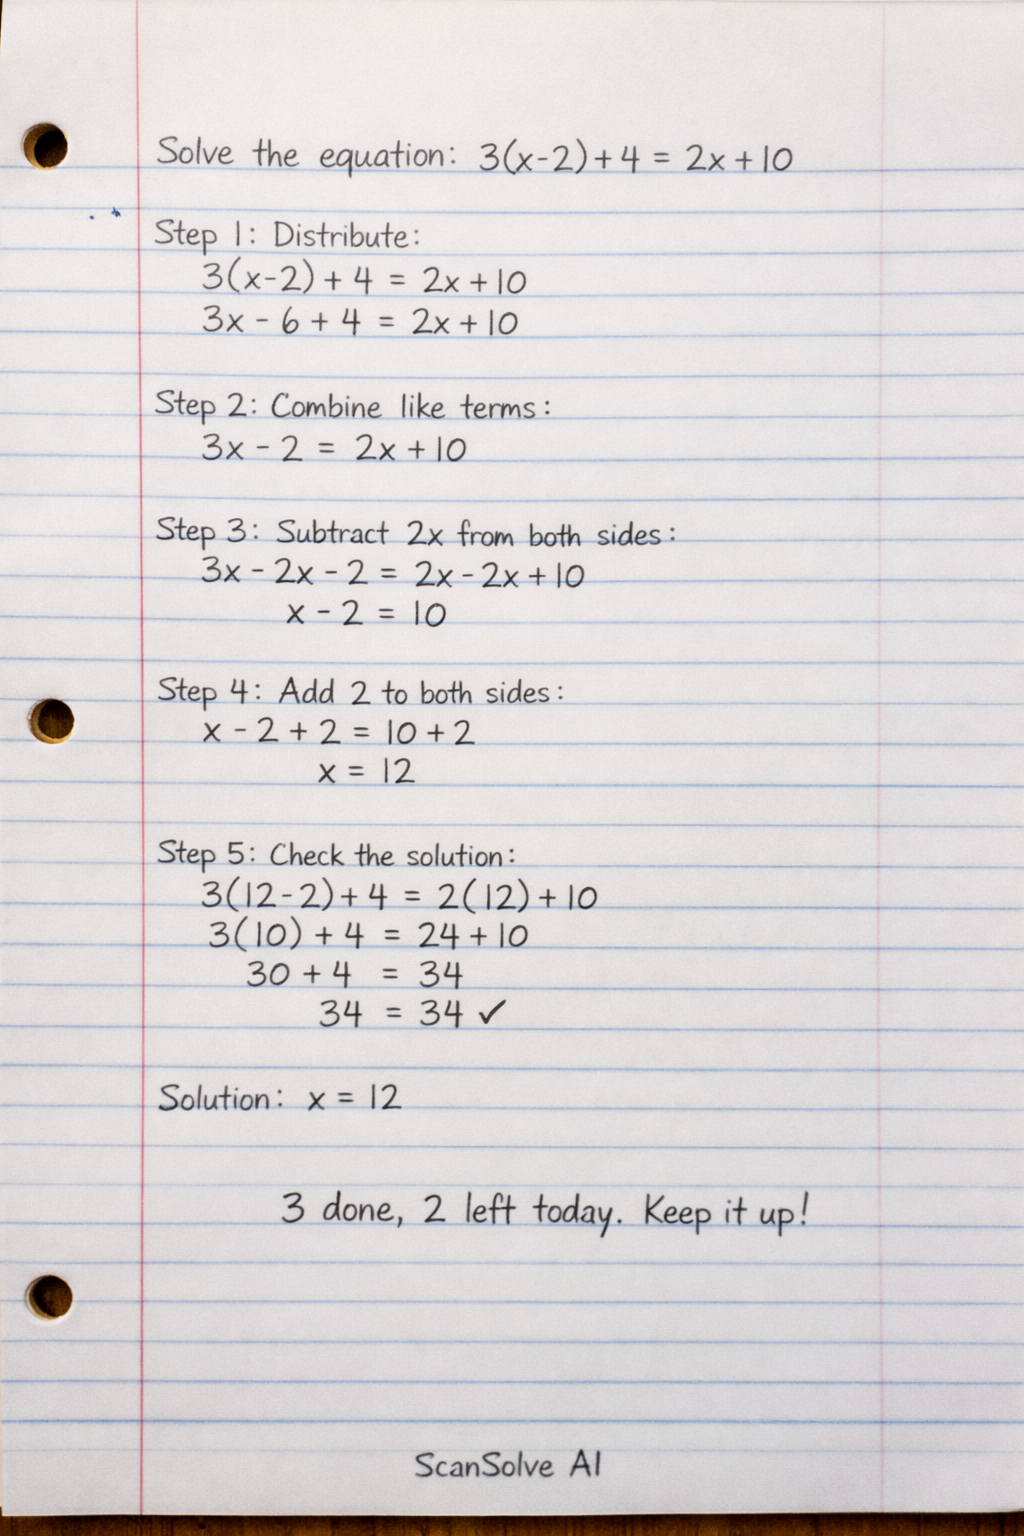 Solve the equation: 3(x-2)+4 = 2x+10
Step 1: Distribute:
3(x-2)+4 = 2x+10
3x - 6 + 4 = 2x+10
Step 2: Combine like terms:
3x - 2 = 2x+10
Step 3: Subtract 2x from both sides:
3x - 2x - 2 = 2x - 2x + 10
x - 2 = 10
Step 4: Add 2 to both sides:
x - 2 + 2 = 10 + 2
x = 12
Step 5: Check the solution:
3(12-2)+4 = 2(12)+10
3(10)+4 = 24+10
30 + 4 = 34
34 = 34 ✓
Solution: x = 12
3 done, 2 left today. Keep it up!
ScanSolve AI